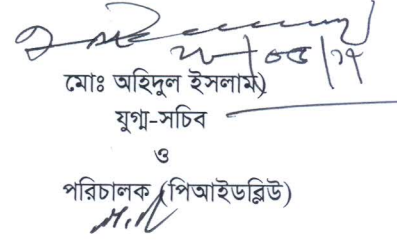 মোঃ অহিদুল ইসলাম)
যুগ্ম-সচিব
ও
পরিচালক (পিআইডব্লিউ)